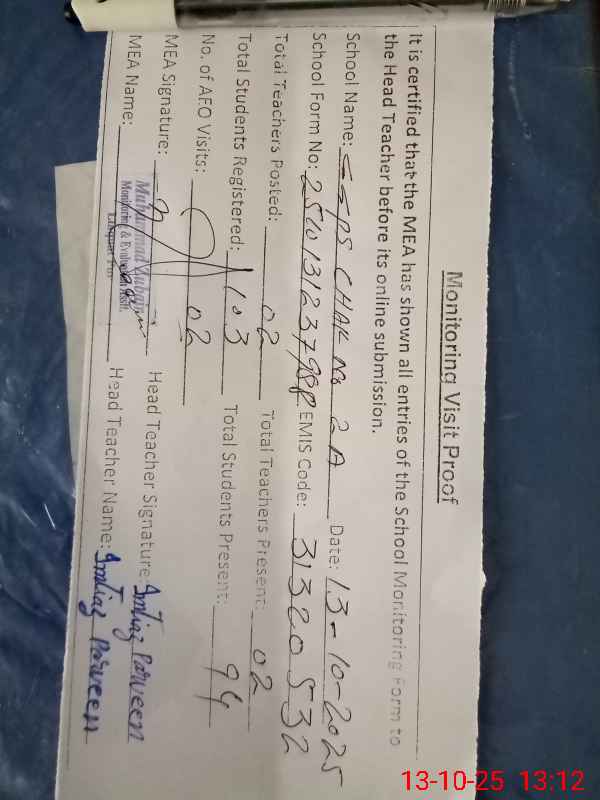 Monitoring Visit Proof
It is certified that the MEA has shown all entries of the School Monitoring Form to
the Head Teacher before its online submission.
School Name: GGPS CHAK No 2 A Date: 13-10-2025
School Form No: EMIS Code: 31320532
Total Teachers Posted: 02 Total Teachers Present: 02
Total Students Registered: 103 Total Students Present: 94
No. of AEO Visits: 02
MEA Signature: Head Teacher Signature: Imtiaz Parveen
MEA Name: Muhammad Monitoring & Evaluation Head Teacher Name: Imtiaz Parveen
13-10-25 13:12